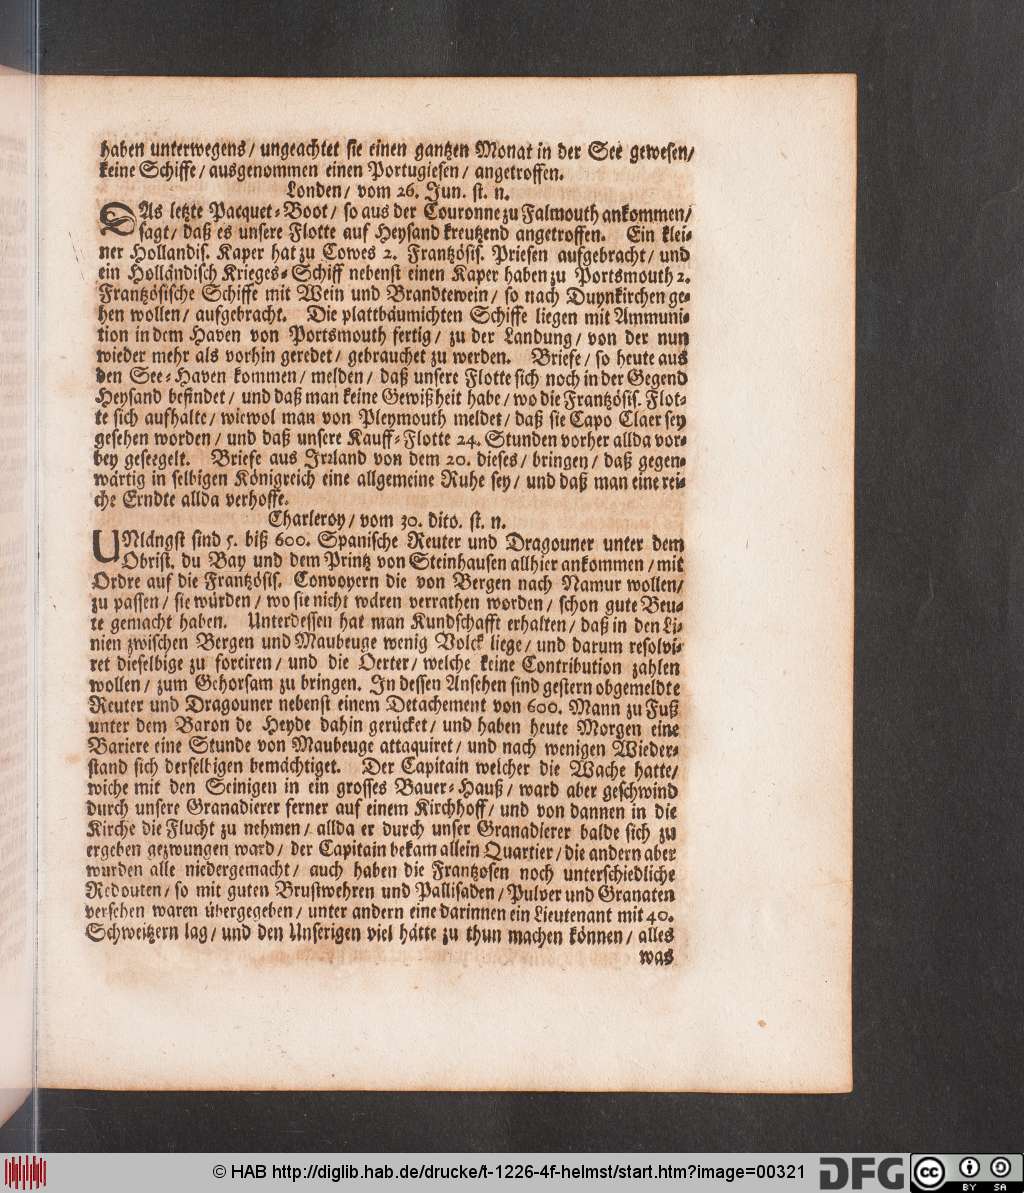 haben unterwegens/ ungeachtet sie einen gantzen Monat in der See gewesen/
keine Schiffe/ ausgenommen einen Portugiesen/ angetroffen.
Londen/ vom 26. Jun. st. n.
DAs letzte Pacquet-Boot/ so aus der Couronne zu Falmouth ankommen/
sagt/ daß es unsere Flotte auf Heysand kreutzend angetroffen. Ein klei-
ner Holländis. Kaper hat zu Cowes 2. Frantzösis. Priesen aufgebracht/ und
ein Holländisch Krieges-Schiff nebenst einen Kaper haben zu Portsmouth 2.
Frantzösische Schiffe mit Wein und Brandtewein/ so nach Duynkirchen ge-
hen wollen/ aufgebracht. Die plattbäumichten Schiffe liegen mit Ammuni-
tion in dem Haven von Portsmouth fertig/ zu der Landung/ von der nun
wieder mehr als vorhin geredet/ gebrauchet zu werden. Briefe/ so heute aus
den See-Haven kommen/ melden/ daß unsere Flotte sich noch in der Gegend
Heysand befindet/ und daß man keine Gewißheit habe/ wo die Frantzösis. Flot-
te sich aufhalte/ wiewol man von Pleymouth meldet/ daß sie Capo Claer sey
gesehen worden/ und daß unsere Kauff-Flotte 24. Stunden vorher allda vor-
bey gesegelt. Briefe aus Irrland von dem 20. dieses/ bringen/ daß gegen-
wärtig in selbigen Königreich eine allgemeine Ruhe sey/ und daß man eine rei-
che Erndte allda verhoffe.
Charleroy/ vom 30. dito. st. n.
UNlängst sind 5. biß 600. Spanische Reuter und Dragouner unter dem
Obrist. du Bay und dem Printz von Steinhausen allhier ankommen/ mit
Ordre auf die Frantzösis. Convoyern die von Bergen nach Namur wollen/
zu passen/ sie würden/ wo sie nicht wären verrathen worden/ schon gute Beu-
te gemacht haben. Unterdessen hat man Kundschafft erhalten/ daß in den Li-
nien zwischen Bergen und Maubeuge wenig Volck liege/ und darum resolvi-
ret dieselbige zu forciren/ und die Oerter/ welche keine Contribution zahlen
wollen/ zum Gehorsam zu bringen. In dessen Ansehen sind gestern obgemeldte
Reuter und Dragouner nebenst einem Detachement von 600. Mann zu Fuß
unter dem Baron de Heyde dahin gerücket/ und haben heute Morgen eine
Bariere eine Stunde von Maubeuge attaquiret/ und nach wenigen Wieder-
stand sich derselbigen bemächtiget. Der Capitain welcher die Wache hatte/
wiche mit den Seinigen in ein grosses Bauer-Hauß/ ward aber geschwind
durch unsere Granadierer ferner auf einem Kirchhoff/ und von dannen in die
Kirche die Flucht zu nehmen/ allda er durch unser Granadierer balde sich zu
ergeben gezwungen ward/ der Capitain bekam allein Quartier/ die andern aber
wurden alle niedergemacht/ auch haben die Frantzosen noch unterschiedliche
Redouten/ so mit guten Brustwehren und Pallisaden/ Pulver und Granaten
versehen waren übergegeben/ unter andern eine darinnen ein Lieutenant mit 40.
Schweitzern lag/ und den Unserigen viel hätte zu thun machen können/ alles
was
© HAB http://diglib.hab.de/drucke/t-1226-4f-helmst/start.htm?image=00321
DFG
cc BY SA